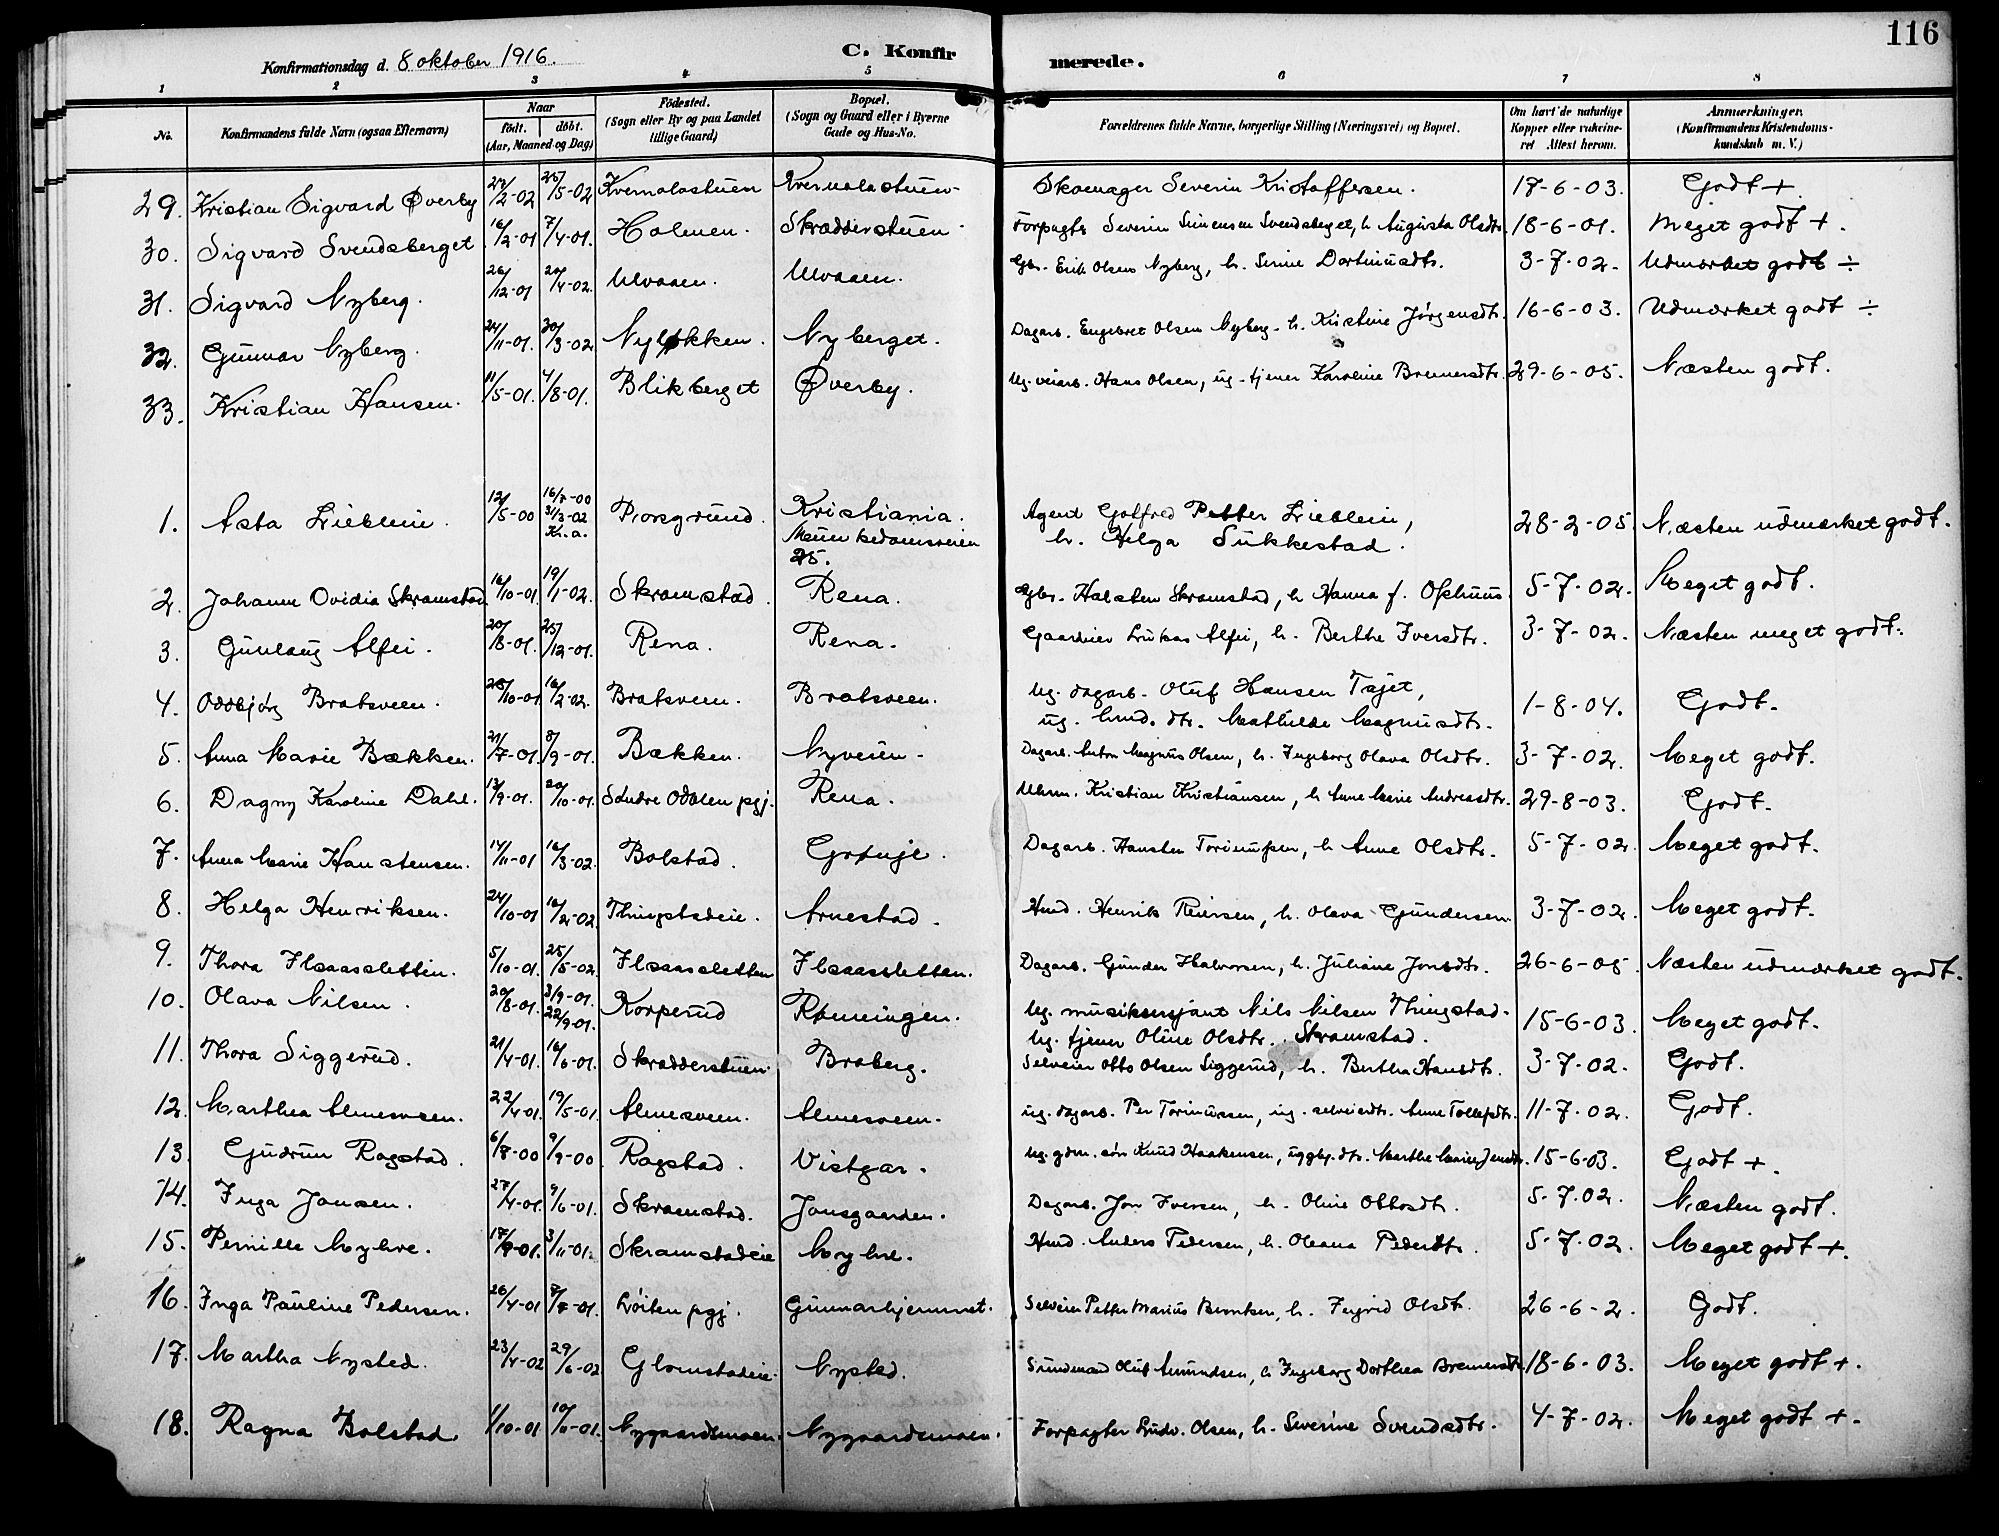 116
Konfirmationsdag d. 8 oktober 1916.
C. Konfirmerede.
1 2 3 4 5 6 7 8
No. Konfirmandens fulde Navn (ogsaa Efternavn) Naar födt. döbt. (Aar, Maaned og Dag) Födested. (Sogn eller By og paa Landet tillige Gaard) Bopæl. (Sogn og Gaard eller i Byerne Gade og Hus-No.) Forældrenes fulde Navne, borgerlige Stilling (Næringsvei) og Bopæl. Om havt de naturlige Kopper eller vakcineret. Attest herom. Anmærkninger. (Konfirmandens Kristendomskundskab m. V.)
29. Kristian Sigvard Øverby 27/2-02 25/5-02 Kvernolastuen Kvernolastuen. Skomager Severin Kristoffersen. 17-6-03. Godt +
30. Sigvard Svendsberget 16/2-01 7/4-01. Holmen. Skrædderstuen. Forpagter Severin Simensen Svendsberget, h. Augusta Olsdtr. 18-6-01. Meget godt +.
31. Sigvard Nyberg. 26/12-01 20/4-02. Ulvaaen. Ulvaaen. Gbr. Erik Olsen Nyberg, h. Serine Dortinusdtr. 3-7-02. Udmærket godt ÷
32. Gunnar Nyberg. 24/11-01. 30/3-02 Nyløkken. Nyberget. Dagarb. Engebret Olsen Nyberg - h. Kristine Jörgensdtr. 16-6-03. Udmærket godt ÷
33. Kristian Hansen. 11/5-01. 4/8-01. Blikberget Øverby. Ug. veiarb. Hans Olsen, ug. tjener Karoline Bremersdtr. 29-6-05. Næsten godt.
1. Asta Lieblein. 12/5-00 16/7-00 31/3-02 Kr.a. Porsgrund. Kristiania. 25. Agent Gotfred Petter Lieblein, h. Helga Sukkestad. 28-2-05. Næsten udmærket godt.
2. Johanne Ovidia Skramstad 16/10-01. 19/1-02. Skramstad. Rena. Gbr. Halsten Skramstad, h. Hanna f. Ophuus. 5-7-02. Meget godt.
3. Gunlaug Alfei. 20/8-01. 25/12-01. Rena. Rena. Gaardeier Lukas Alfei, h. Berthe Iversdtr. 3-7-02. Næsten meget godt.
4. Oddbjörg Bratsveen. 28/10-01 16/2-02. Bratsveen. Bratsveen. Ug. dagarb. Oluf Hansen Tajet, ug. hmd. dtr. Mathilde Magnusdtr. 1-8-04. Godt.
5. Anna Marie Bækken. 21/7-01 8/9-01. Bækken. Nyveien. Dagarb. Anton Magnus Olsen, h. Ingeborg Olava Olsdtr. 3-7-02. Meget godt.
6. Dagny Karoline Dahl. 13/9-01. 20/10-01. Söndre Odalen pgj. Rena. Uhrm. Kristian Kristiansen, h. Anne Marie Andreasdtr. 29-8-03. Godt.
7. Anna Marie Hanstensen. 14/11-01 16/3-02. Bolstad. Grönje. Dagarb. Hansten Torinussen, h. Anne Olsdtr. 5-7-02. Meget godt.
8. Helga Henriksen. 24/10-01 16/2-02. Thingstadeie. Arnestad. Hmd. Henrik Reiersen, h. Olava Gundersen. 3-7-02. Meget godt.
9. Thora Flsaassletten. 5/10-01. 25/5-02. Flsaassletten Flsaassletten. Dagarb. Gunder Halvorsen, h. Juliane Jonsdtr. 26-6-05. Næsten udmærket godt.
10. Olava Nilsen. 20/8-01. 3/9-01. 22/9-01. Korperud Rønningen. Ug. musikersjant Nils Nilsen Thingstad. Ug. tjener Oline Olsdtr. Skramstad. 15-6-03. Meget godt.
11. Thora Siggerud. 21/4-01. 16/6-01. Skrædderstuen. Braberg. Selveier Otto Olsen Siggerud, h. Bertha Hansdtr. 3-7-02. Godt.
12. Marthea Almesveen. 22/4-01. 19/5-01. Almesveen. Almesveen. ug. dagarb. Per Torinussen, ug. selveierdtr. Anne Tollefsdtr. 11-7-02. Godt.
13. Gudrun Rogstad. 6/8-00 9/9-00. Rogstad. Vistgar. Ug. gdm. sön Knud Haakensen, ug gbr. dtr. Marthe Marie Jensdtr. 15-6-03. Godt +.
14. Inga Jonsen. 27/4-01. 9/6-01. Skramstad. Jonsgaarden. Dagarb. Jon Iversen, h. Oline Ottosdtr. 5-7.02. Næsten godt.
15. Pernille Myhre. 17/9-01. 3/11-01. Skramstadeie Myhre. Hmd. Anders Pedersen, h. Oleana Pedersdtr. 5-7-02. Meget godt +.
16. Inga Pauline Pedersen. 26/4-01 7/7-01. Löiten pgj. Gunnarhjemmet. Selveier Petter Marius Berntsen, h. Ingrid Olsdtr. 26-6-2. Godt.
17. Martha Nysted. 23/4-02 29/6-02 Glomstadeie. Nysted. Oluf Amundsen, h. Ingeborg Dorthea Bremersdtr. 18-6-03. Meget godt +.
18. Ragna Bolstad 1/10-01 10/11-01. Nygaardsmoen. Nygaardsmoen. Forpagter Ludv. Olsen, h. Severine Svendsdtr. 4-7-02. Meget godt +.